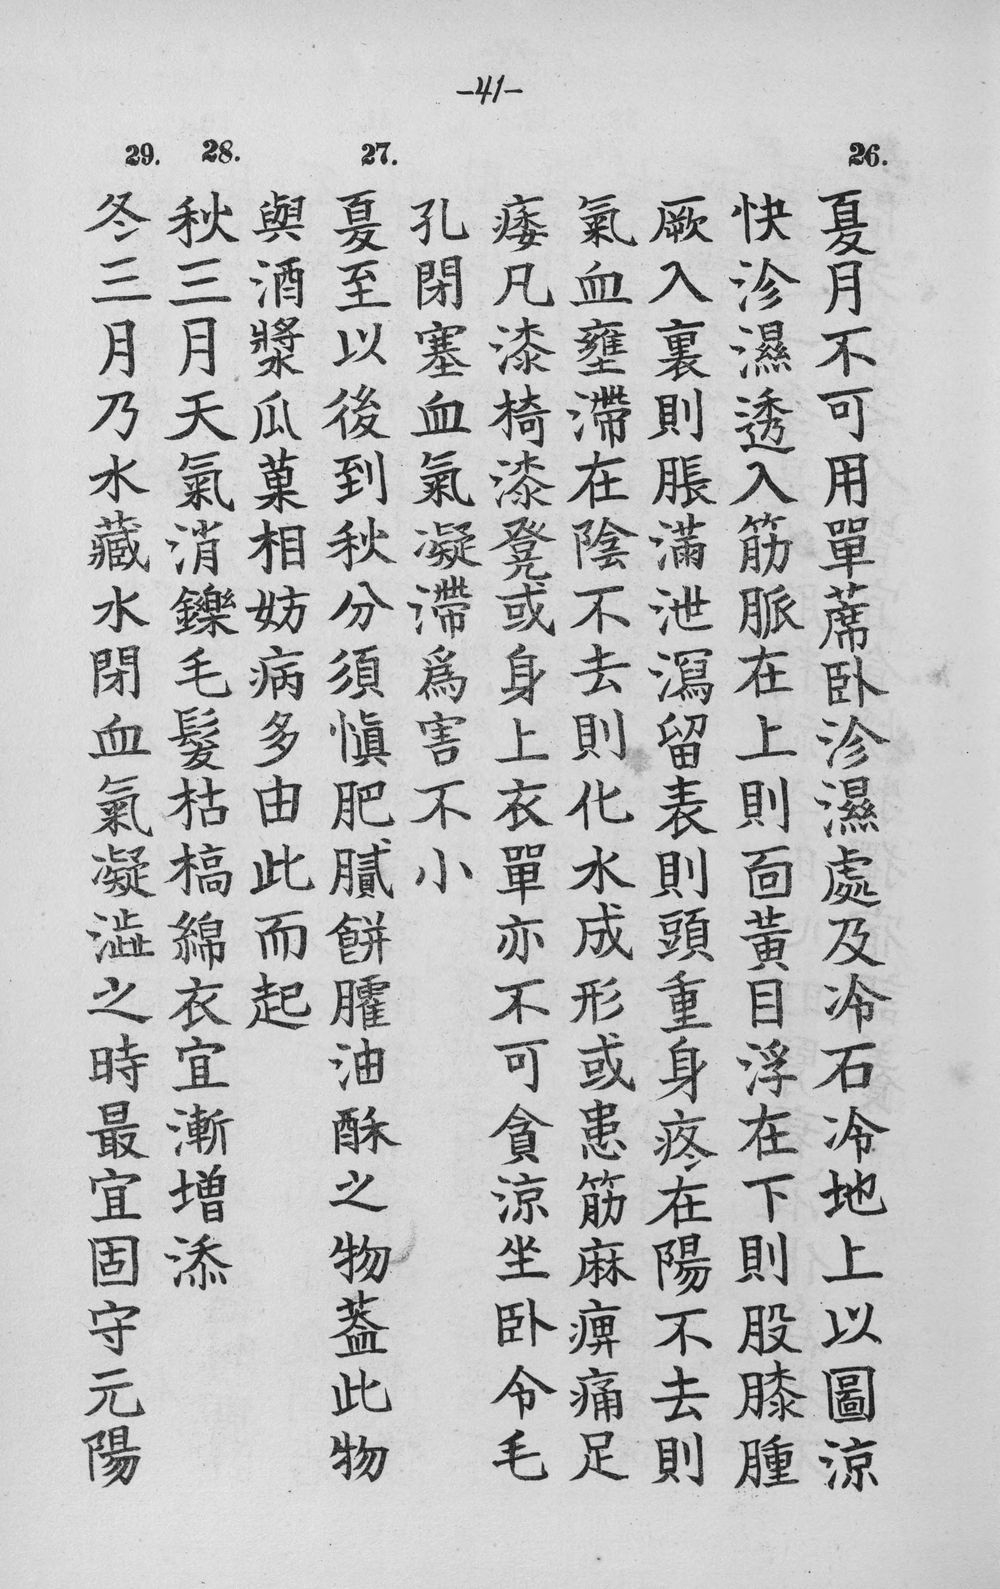 -41-
26.
夏月不可用單蓆卧沴濕處及冷石冷地上以圖涼
快沴濕透入筋脈在上則靣黃目浮在下則股膝腫
厥入裏則脹滿泄瀉留表則頭重身疼在陽不去則
氣血壅滯在陰不去則化水成形或患筋麻痹痛足
痿凡漆椅漆凳或身上衣單亦不可貪涼坐卧令毛
孔閉塞血氣凝滯爲害不小
27.
夏至以後到秋分須慎肥膩餅臛油酥之物蓋此物
與酒漿瓜菓相妨病多由此而起
28.
秋三月天氣消鑠毛髮枯槁綿衣宜漸增添
29.
冬三月乃水藏水閉血氣凝澁之時最宜固守元陽